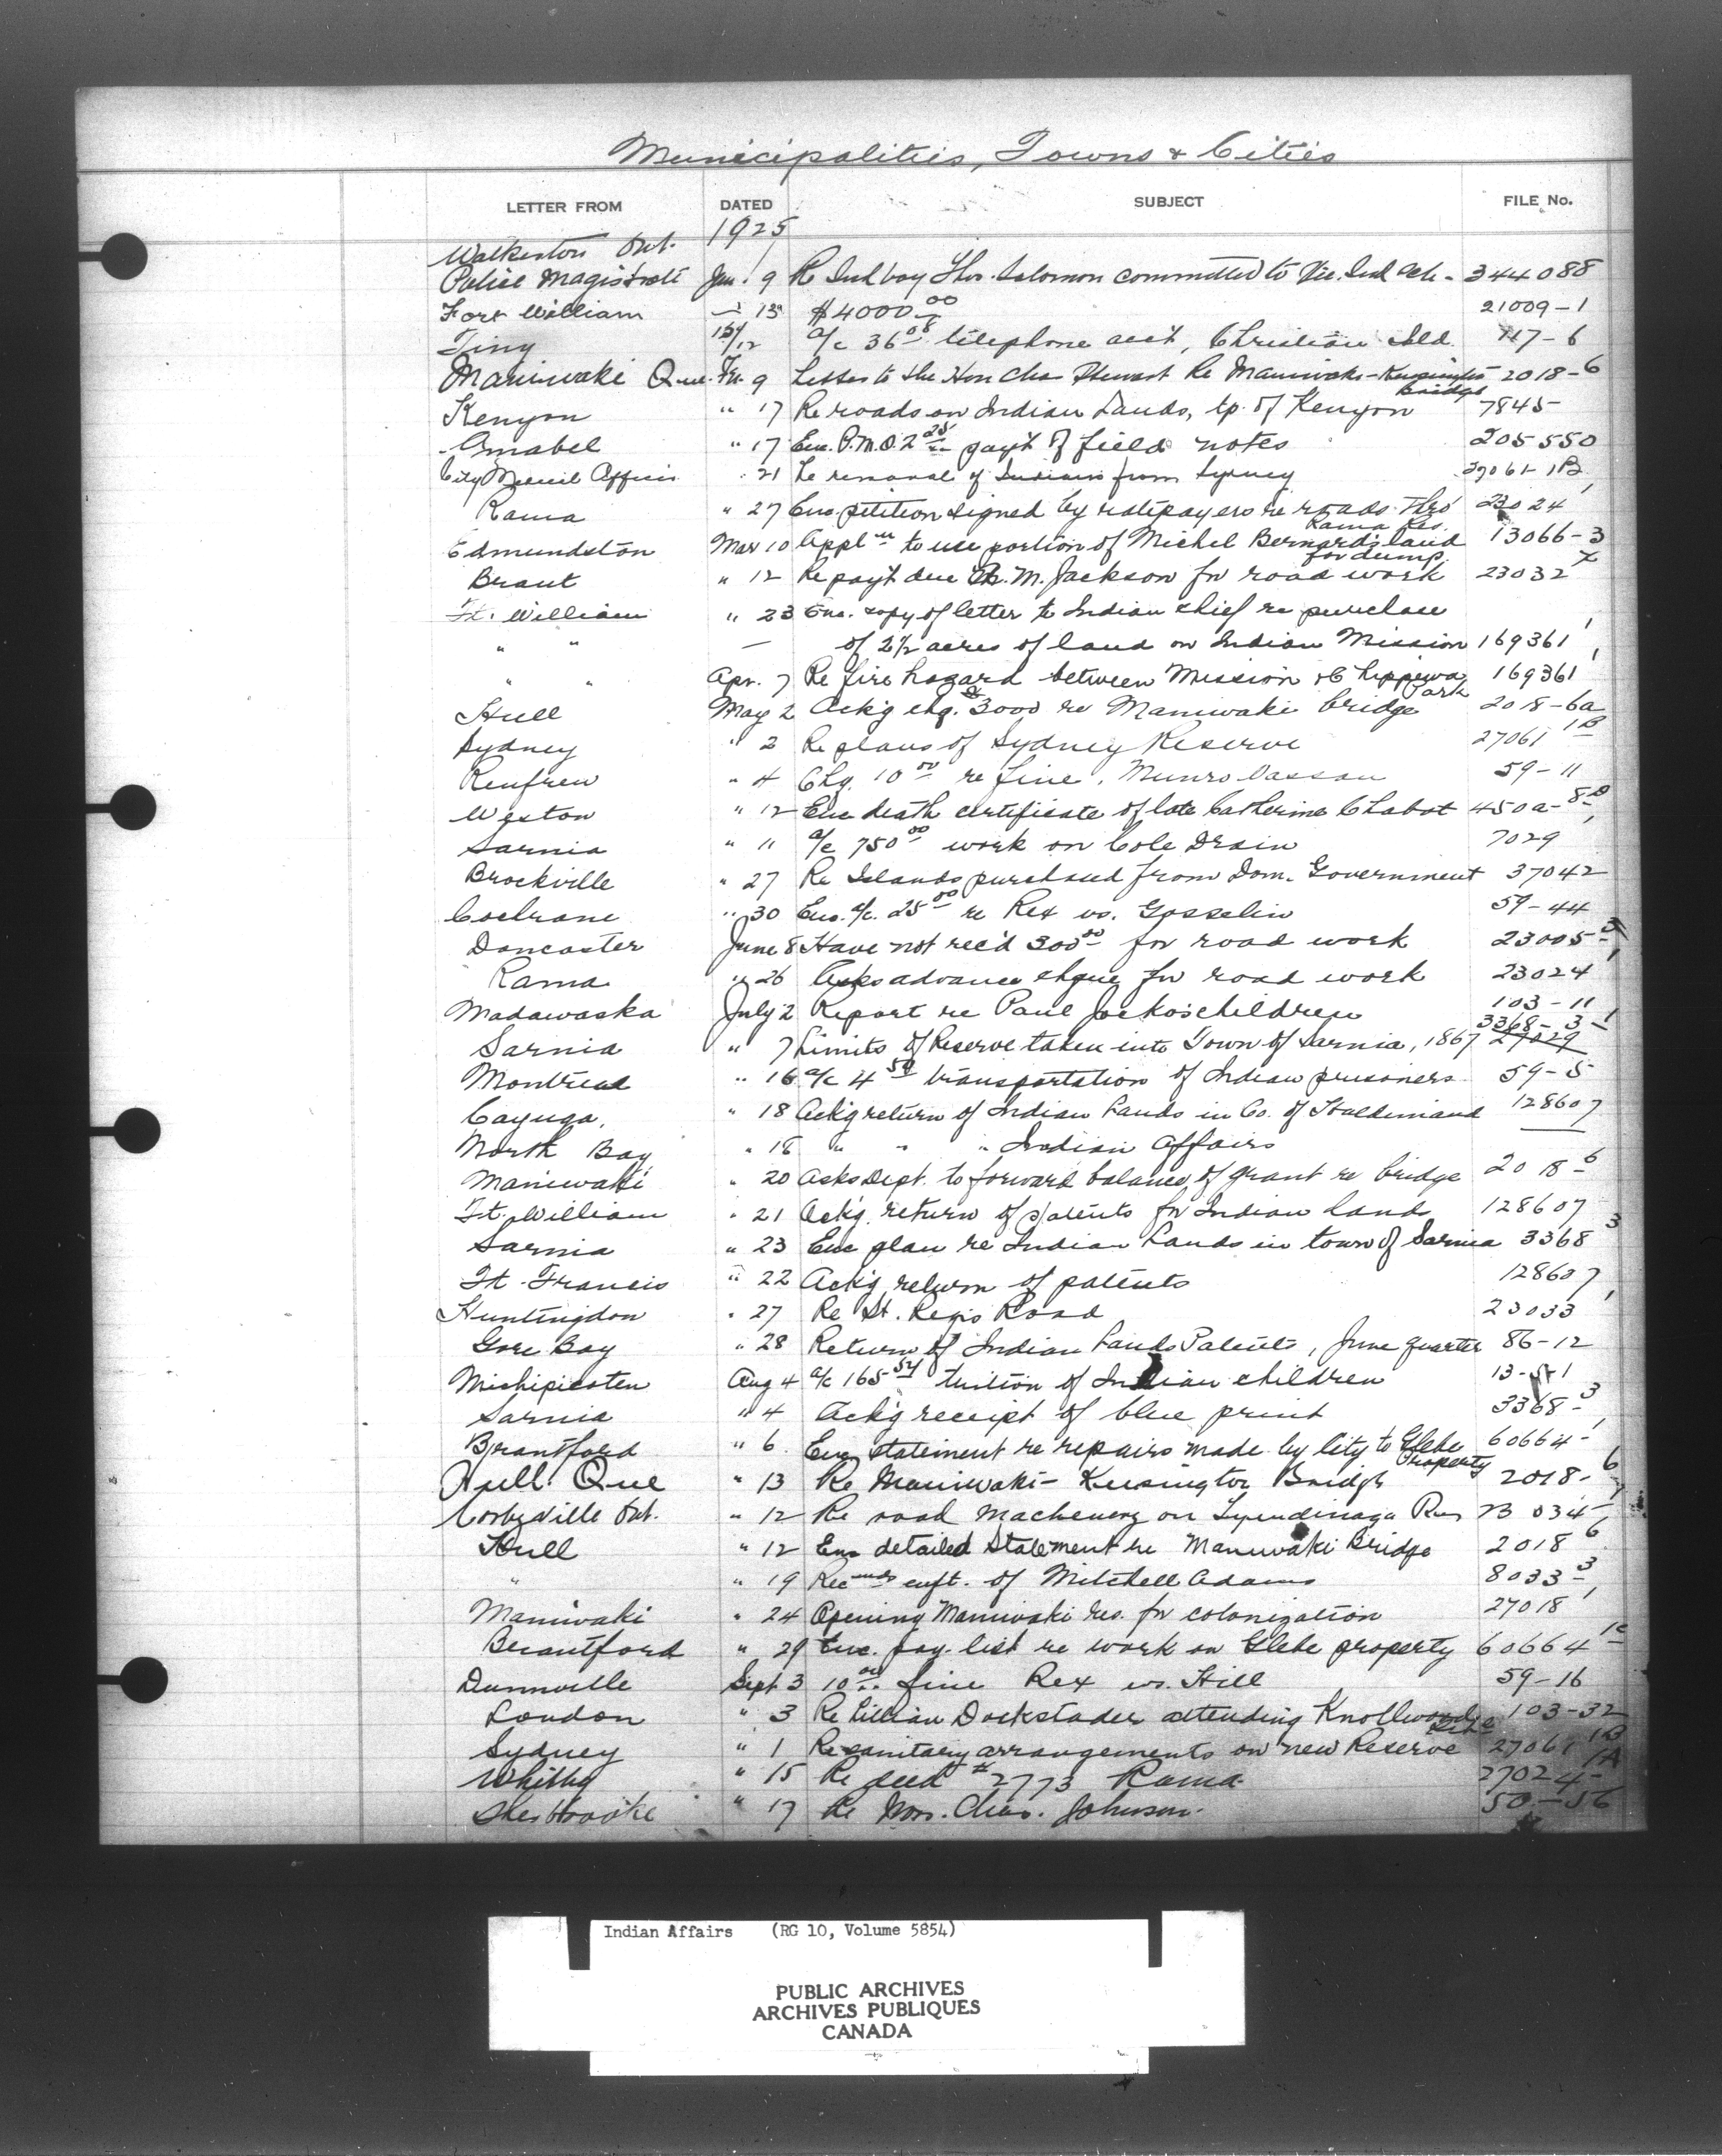 Municipalities, Towns & Cities
LETTER FROM DATED SUBJECT FILE No.
1925
Walkerton Ont.
Police Magistrate Jan. 9 Re Ind boy Thos. Solomon committed to Vic. Ind Sch - 344088
Fort William " 13 $4000.00 21009-1
Tiny 15/12 a/c 36.08 telephone acct, Christian Isld. 117-6
Maniwaki Que. Fe. 9 Letter to the Hon Chas Stewart Re Maniwaki-Kensington bridge 2018-6
Kenyon " 17 Re roads on Indian Lands, tp. of Kenyon 7845
Amabel " 17 Enc. P.M.O. 2.25 pay't of field notes 205550
City Medical Officer " 21 Re removal of Indians from Sydney 27061-1B
Rama " 27 Enc. petition signed by ratepayers re roads thro' Rama Res. 23024 1
Edmundston Mar 10 Appl'n to use portion of Michel Bernard's land for dump. 13066-3
Brant " 12 Re pay't due M. Jackson for road work 23032 x
Ft. William " 23 Enc. copy of letter to Indian chief re purchase
" " — of 2½ acres of land on Indian Mission 169361 1
" " Apr. 7 Re fire hazard between Mission & Chippewa Park 169361 1
Hull May 2 Ack'g chq. $3000 re Maniwaki bridge 2018-6a
Sydney " 2 Re plans of Sydney Reserve 27061 1B
Renfrew " 4 Chq. 10.00 re fine, Munro 59-11
Weston " 12 Enc death certificate of late Catherine Chabot 450a-8
Sarnia " 11 a/c 750.00 work on Cole Drain 7029
Brockville " 27 Re Islands purchased from Dom. Government 37042
Cochrane " 30 Enc. a/c. 25.00 re Rex vs. Gosselin 59-44
Doncaster June 8 Have not rec'd 300.00 for road work 23005-3
Rama " 26 Asks advance chque for road work 23024 1
Madawaska July 2 Report re Paul Jocko's children 103-11
Sarnia " 7 Limits of Reserve taken into Town of Sarnia, 1867 3368-3-1 27029
Montreal " 16 a/c 4.50 transportation of Indian prisoners 59-5
Cayuga, " 18 Ack'g return of Indian Lands in Co. of Haldimand 128607
North Bay " 18 " " " Indian Affairs —
Maniwaki " 20 Asks Dept. to forward balance of grant re bridge 2018-6
Ft. William " 21 Ack'g. return of patents for Indian lands 128607
Sarnia " 23 Enc plan re Indian Lands in town of Sarnia 3368 3
Ft. Francis " 22 Ack'g return of patents 128607
Huntingdon " 27 Re St. Regis Road 23033 1
Gore Bay " 28 Return of Indian Lands Patents, June quarter 86-12
Michipicoten Aug 4 a/c 165.54 tuition of Indian children 13-
Sarnia " 4 Ack'g receipt of blue print 3368-3
Brantford " 6 Enc statement re repairs made by City to Glebe Property 60664-1
Hull Que " 13 Re Maniwaki - Kensington Bridge 2018-6
Corbyville Ont. " 12 Re road machinery on Tyendinaga Res 23034-1
Hull " 12 Enc detailed Statement re Maniwaki Bridge 2018 6
" " 19 Rec'mds enft. of Mitchell Adams 8033-3
Maniwaki " 24 Opening Maniwaki res. for colonization 27018 1
Brantford " 29 Enc. pay list re work on Glebe property 60664 1c
Dunnville Sept 3 10.00 fine Rex vs. Hill 59-16
London " 3 Re Lillian Dockstader attending Knollwood 103-32
Sydney " 1 Re sanitary arrangements on new Reserve 27061 1B
Whitby " 15 Re deed #2773 Rama 27024-1A
Sherbrooke " 17 Re Wm. Chas. Johnson. 50-56
Indian Affairs (RG 10, Volume 5854)
PUBLIC ARCHIVES
ARCHIVES PUBLIQUES
CANADA